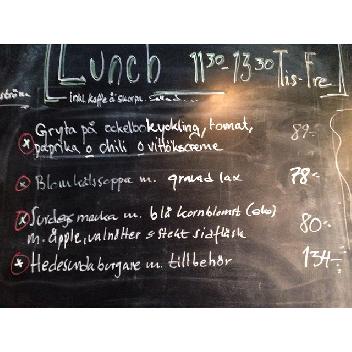 Lunch 11 30 - 13 30 Tis-Fre
inkl. kaffe å skorpa.
Gryta på ockelbokyckling, tomat, 89:-
paprika o chili o vitlökscreme
Blomkålssoppa m. gravad lax 78:-
Surdegs macka m. blå kornblomst (eko) 80:-
m. äpple, valnötter & stekt sidfläsk
Hedesundaburgare m. tillbehör 134:-